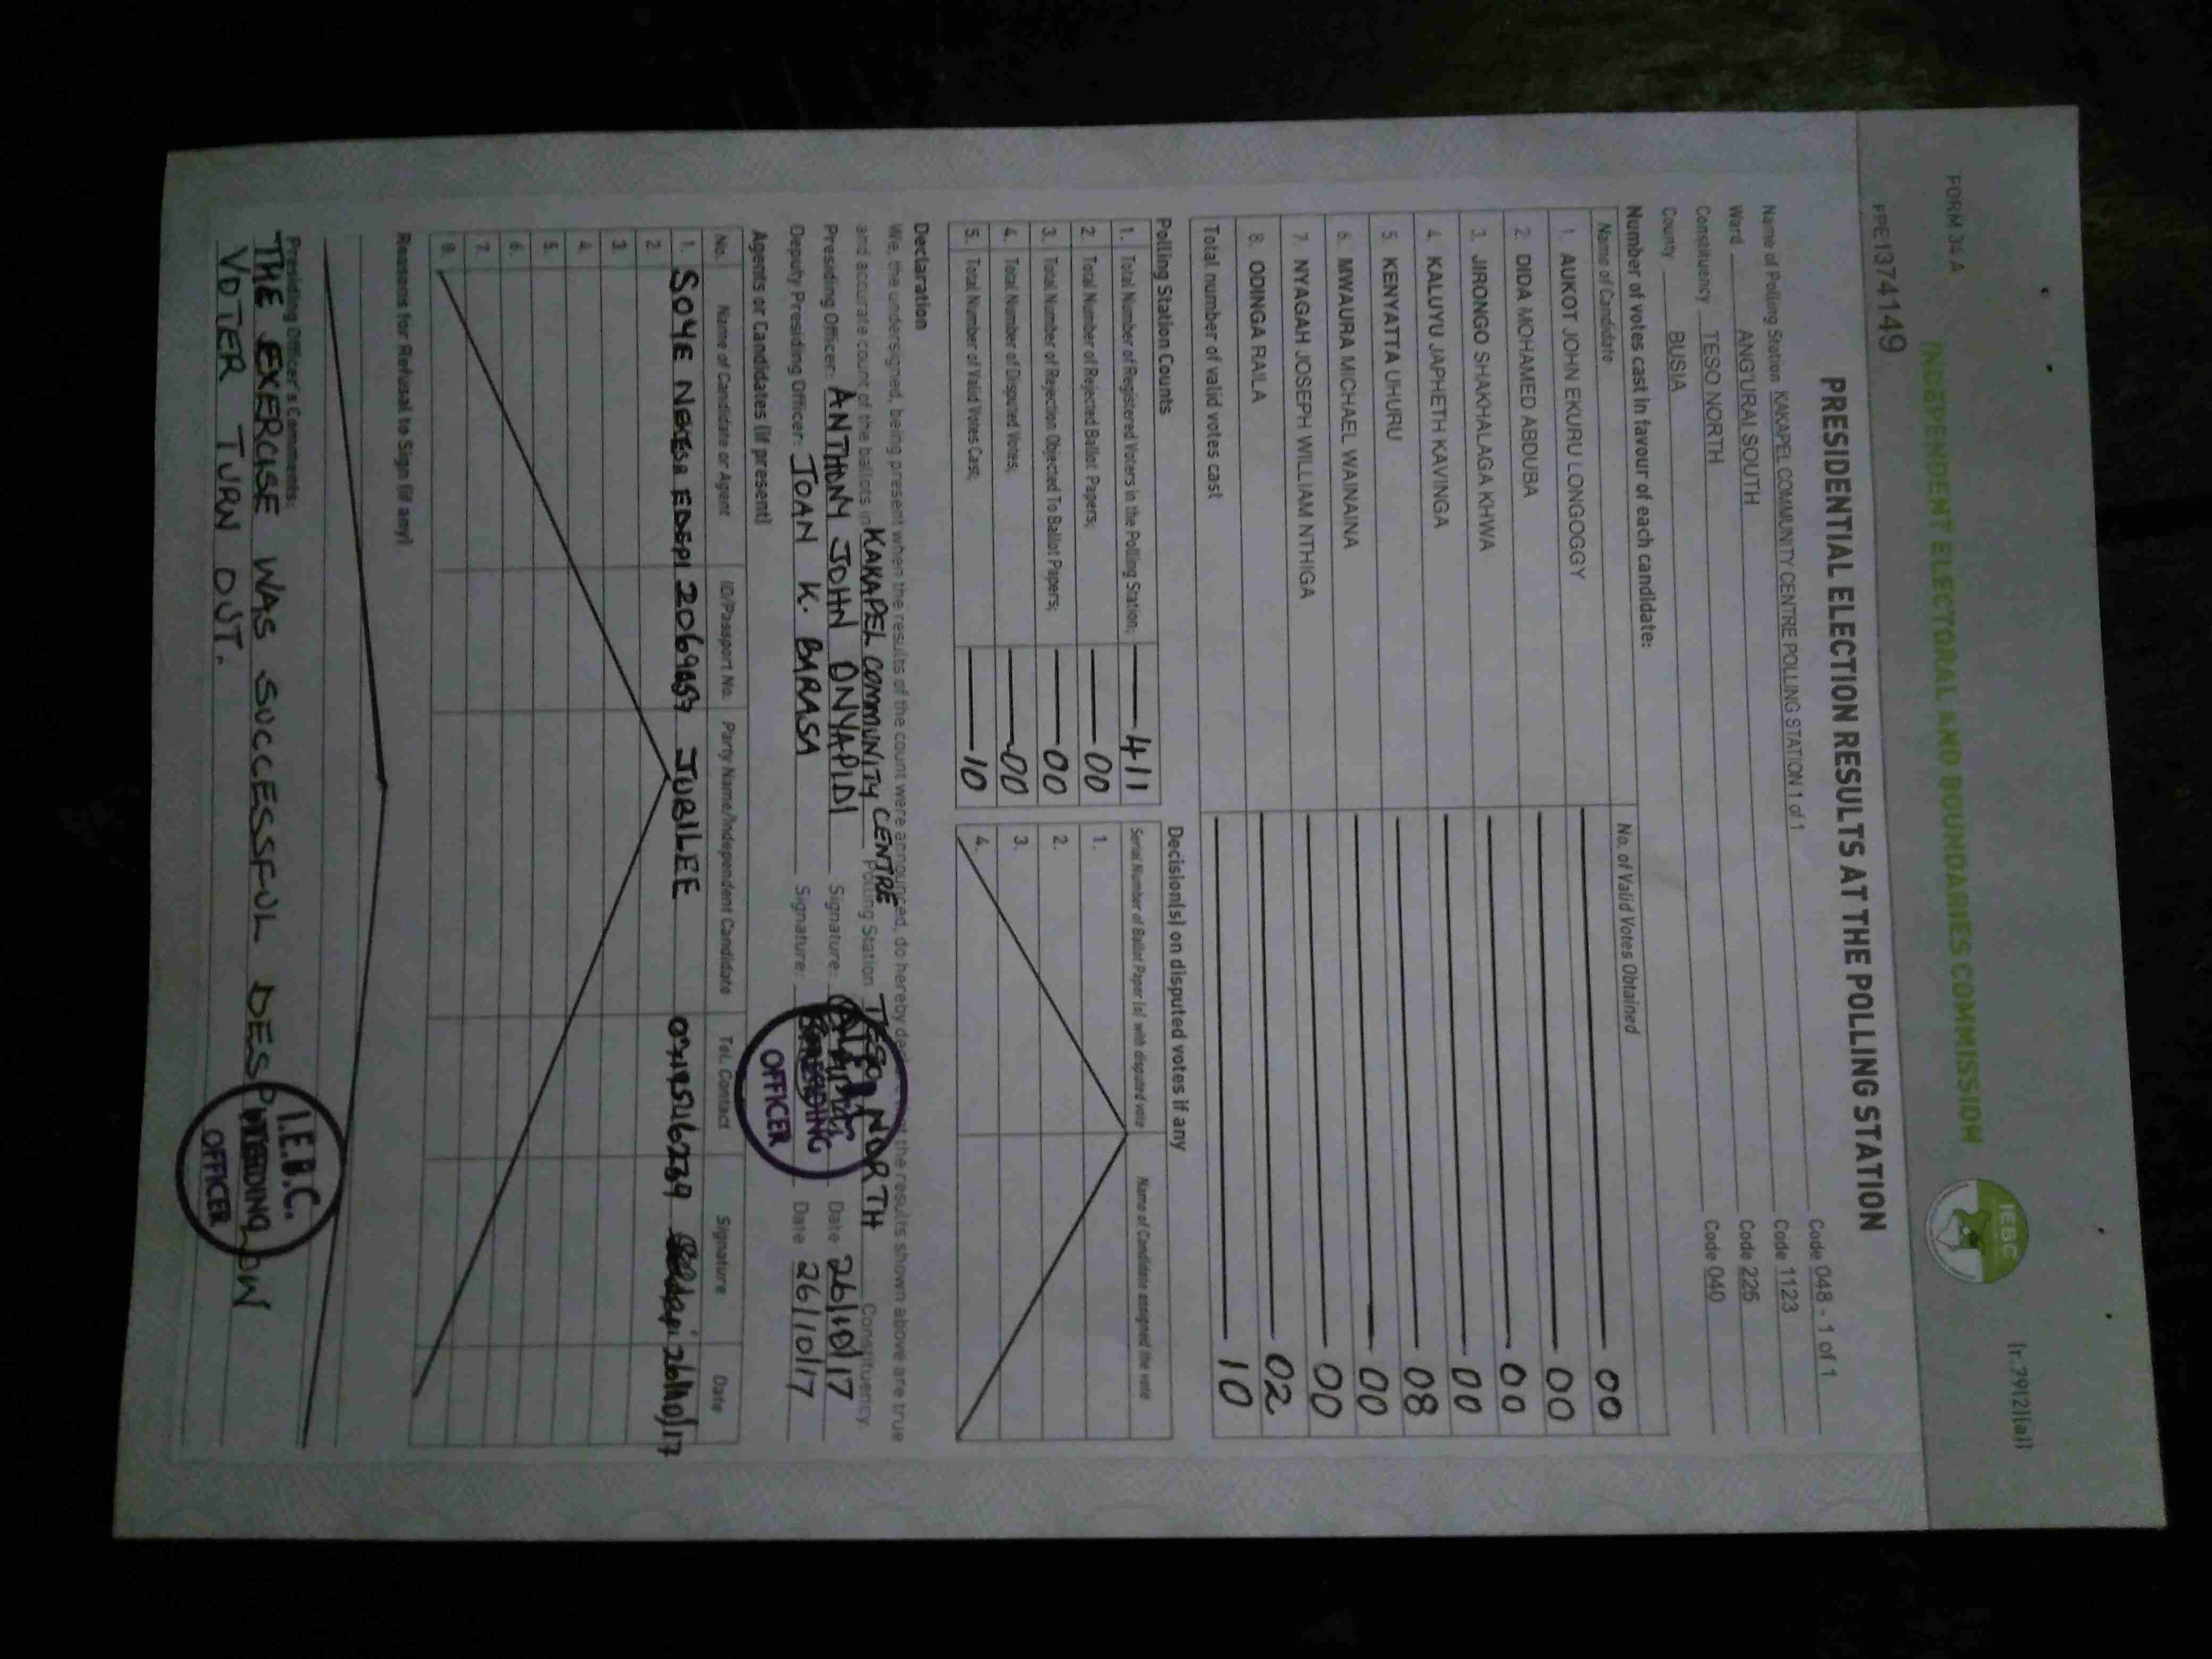 FORM 34 A
[r.79(2)(a)]
INDEPENDENT ELECTORAL AND BOUNDARIES COMMISSION
IEBC
PRE1374149
PRESIDENTIAL ELECTION RESULTS AT THE POLLING STATION
Name of Polling Station KAKAPEL COMMUNITY CENTRE POLLING STATION 1 of 1 Code 048 - 1 of 1
Ward ANG'URAI SOUTH Code 1123
Constituency TESO NORTH Code 225
County BUSIA Code 040
Number of votes cast in favour of each candidate:
Name of Candidate No. of Valid Votes Obtained
1. AUKOT JOHN EKURU LONGOGGY 00
2. DIDA MOHAMED ABDUBA 00
3. JIRONGO SHAKHALAGA KHWA 00
4. KALUYU JAPHETH KAVINGA 00
5. KENYATTA UHURU 08
6. MWAURA MICHAEL WAINAINA 00
7. NYAGAH JOSEPH WILLIAM NTHIGA 00
8. ODINGA RAILA 02
Total number of valid votes cast 10
Polling Station Counts
1. Total Number of Registered Voters in the Polling Station; 411
2. Total Number of Rejected Ballot Papers; 00
3. Total Number of Rejection Objected To Ballot Papers; 00
4. Total Number of Disputed Votes; 00
5. Total Number of Valid Votes Cast; 10
Decision(s) on disputed votes if any
Serial Number of Ballot Paper (s) with disputed vote Name of Candidate assigned the vote
1.
2.
3.
4.
Declaration
We, the undersigned, being present when the results of the count were announced, do hereby the results shown above are true
and accurate count of the ballots in KAKAPEL COMMUNITY CENTRE Polling Station TESO NORTH Constituency.
Presiding Officer: ANTHONY JOHN ONYAPIDI Signature: Date 26/10/17
Deputy Presiding Officer: JOAN K. BARASA Signature: Date 26/10/17
PRESIDING
OFFICER
Agents or Candidates (if present)
No. Name of Candidate or Agent ID/Passport No. Party Name/Independent Candidate Tel. Contact Signature Date
1. JUBILEE 0719546239 26/10/17
2.
3.
4.
5.
6.
7.
8.
Reasons for Refusal to Sign (if any)
Presiding Officer's Comments:
THE EXERCISE WAS SUCCESSFUL DESPITE LOW
VOTER TURN OUT.
I.E.B.C.
PRESIDING
OFFICER